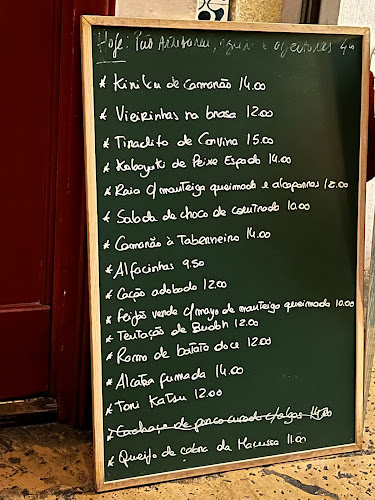 Hoje: Pão Artesanal, e azeitonas 4.00
* Kiniku de Camarão 14.00
* Vieirinhas na brasa 12.00
* Tiradito de Corvina 15.00
* Kabayaki de Peixe Espada 14.00
* Raia c/ manteiga queimada e alcaparras 18.00
* Salada de choco de coentrada 10.00
* Camarão à Taberneiro 14.00
* Alfacinhas 9.50
* Cação adobado 12.00
* Feijão verde c/ mayo de manteiga queimada 10.00
* Tentação de Budbh 12.00
* Romo de batata doce 12.00
* Alcatra fumada 14.00
* Toni Katsu 12.00
* Cachaço de porco curado c/ algas 14.00
* Queijo de cabra da Maçussa 11.00